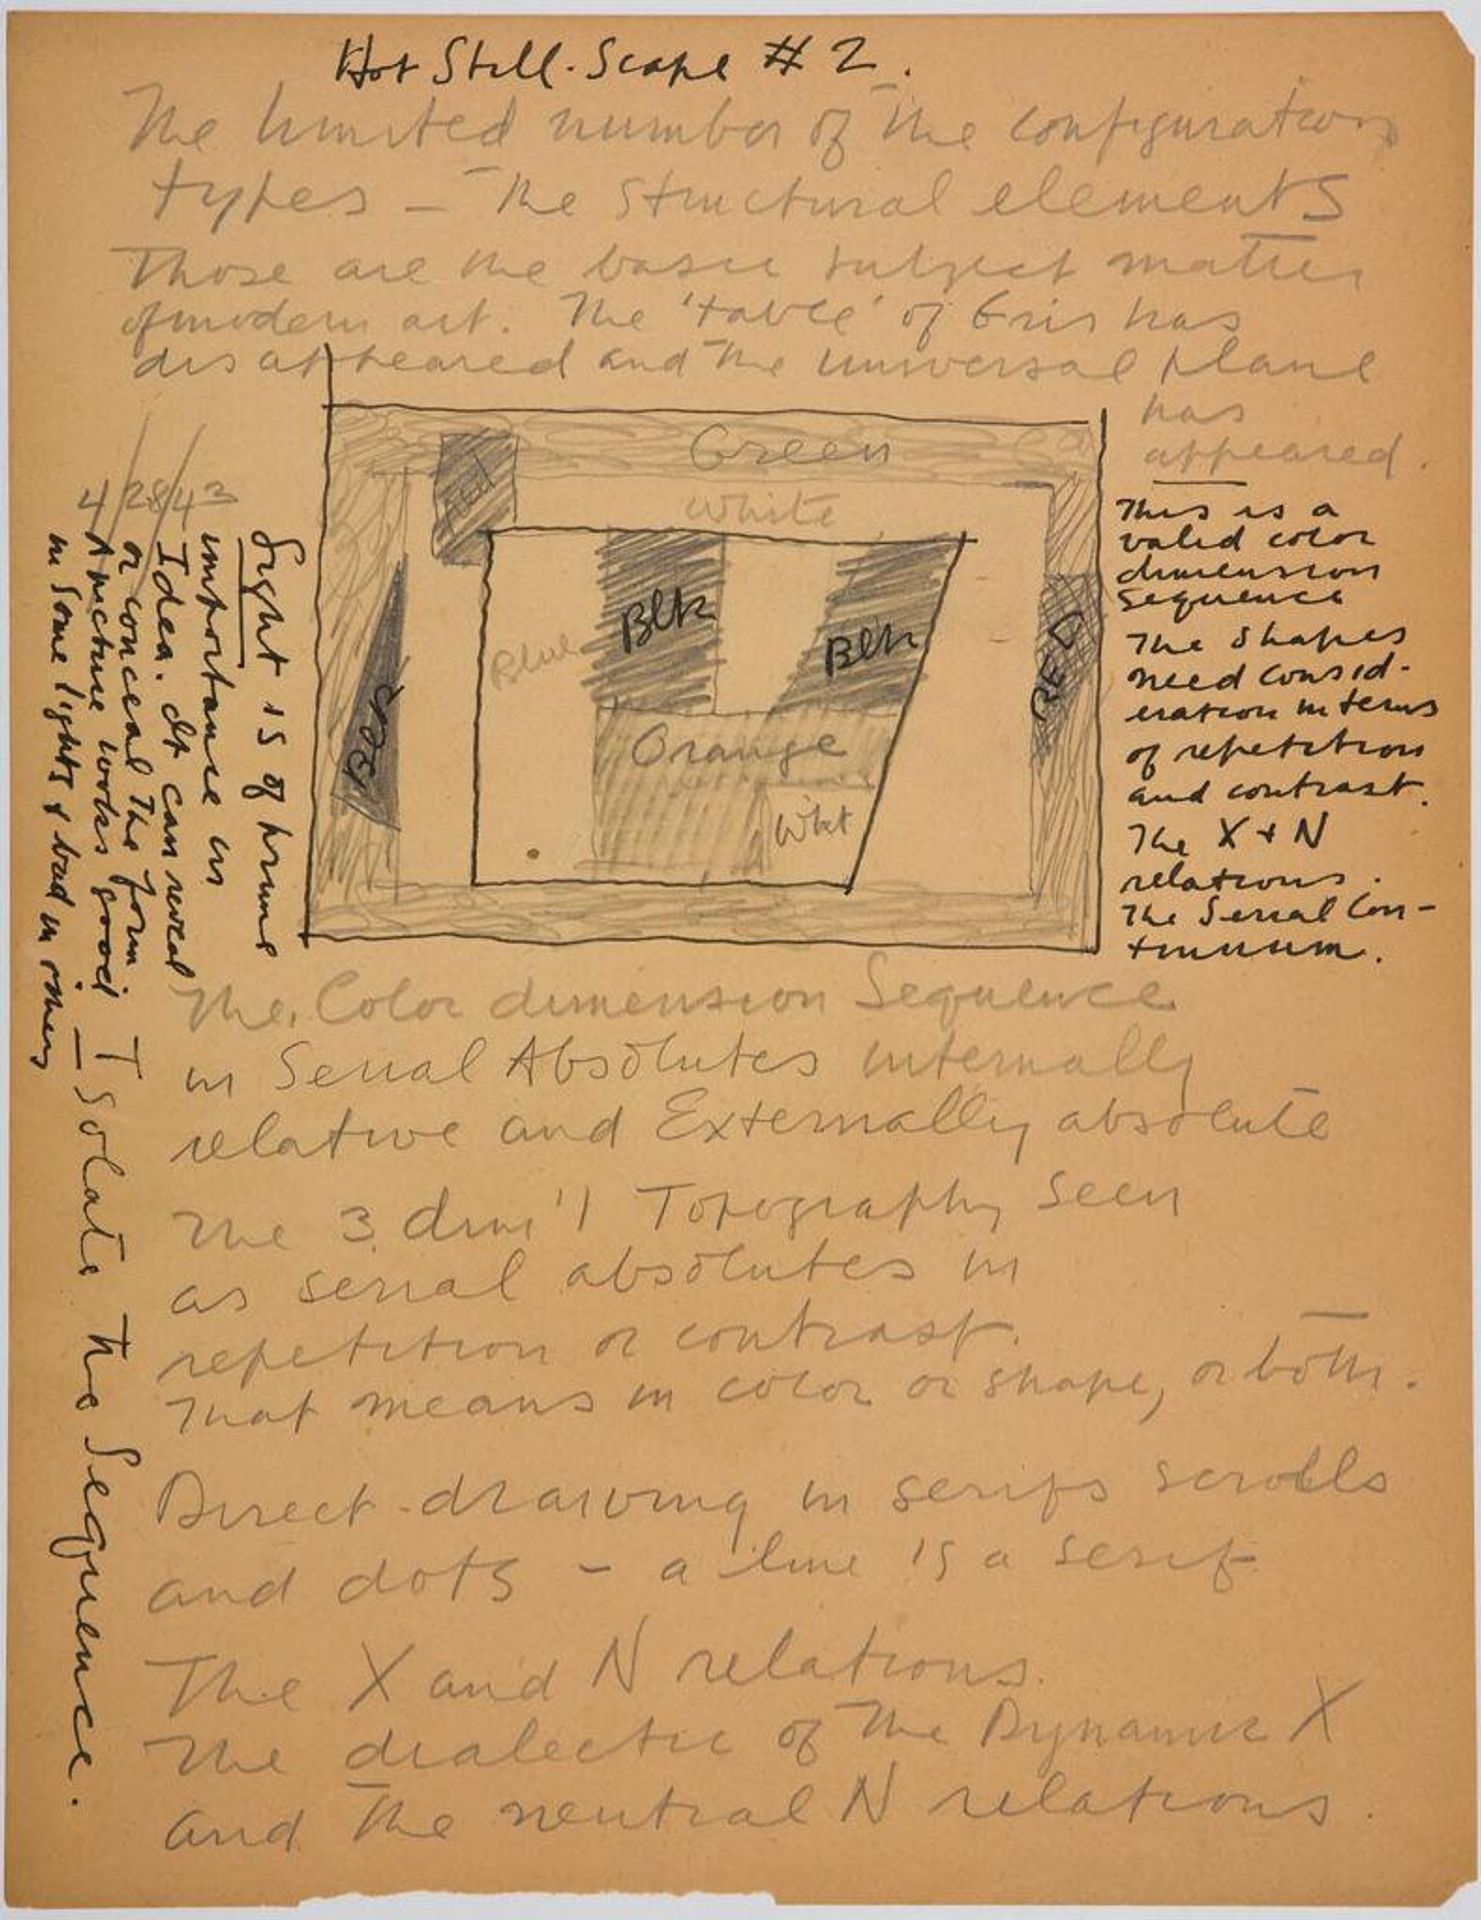 Hot Still-Scape #2.
The limited number of the configuration
types — The structural elements
Those are the basic subject matter
of modern art. The 'table' of Gris has
disappeared and the universal plane
has
appeared.
Green
White
Red
Blue
Blk
Blk
Blk
RED
Orange
Whit
This is a
valid color
dimension
sequence
The shapes
need consid-
eration in terms
of repetition
and contrast.
The X + N
relations.
The Serial Con-
tinuum.
4/28/42
Light is of prime
importance in
Idea. It can reveal
or conceal the form
A picture looks good
in some lights & bad in others
— Isolate the Sequence.
The Color dimension Sequence
in Serial Absolutes internally
relative and Externally absolute
The 3 dim'l Topography seen
as serial absolutes in
repetition or contrast.
That means in color or shape, or both.
Direct drawing in serifs scrolls
and dots - a line is a serif
The X and N relations.
The dialectic of the Dynamic X
and the neutral N relations.